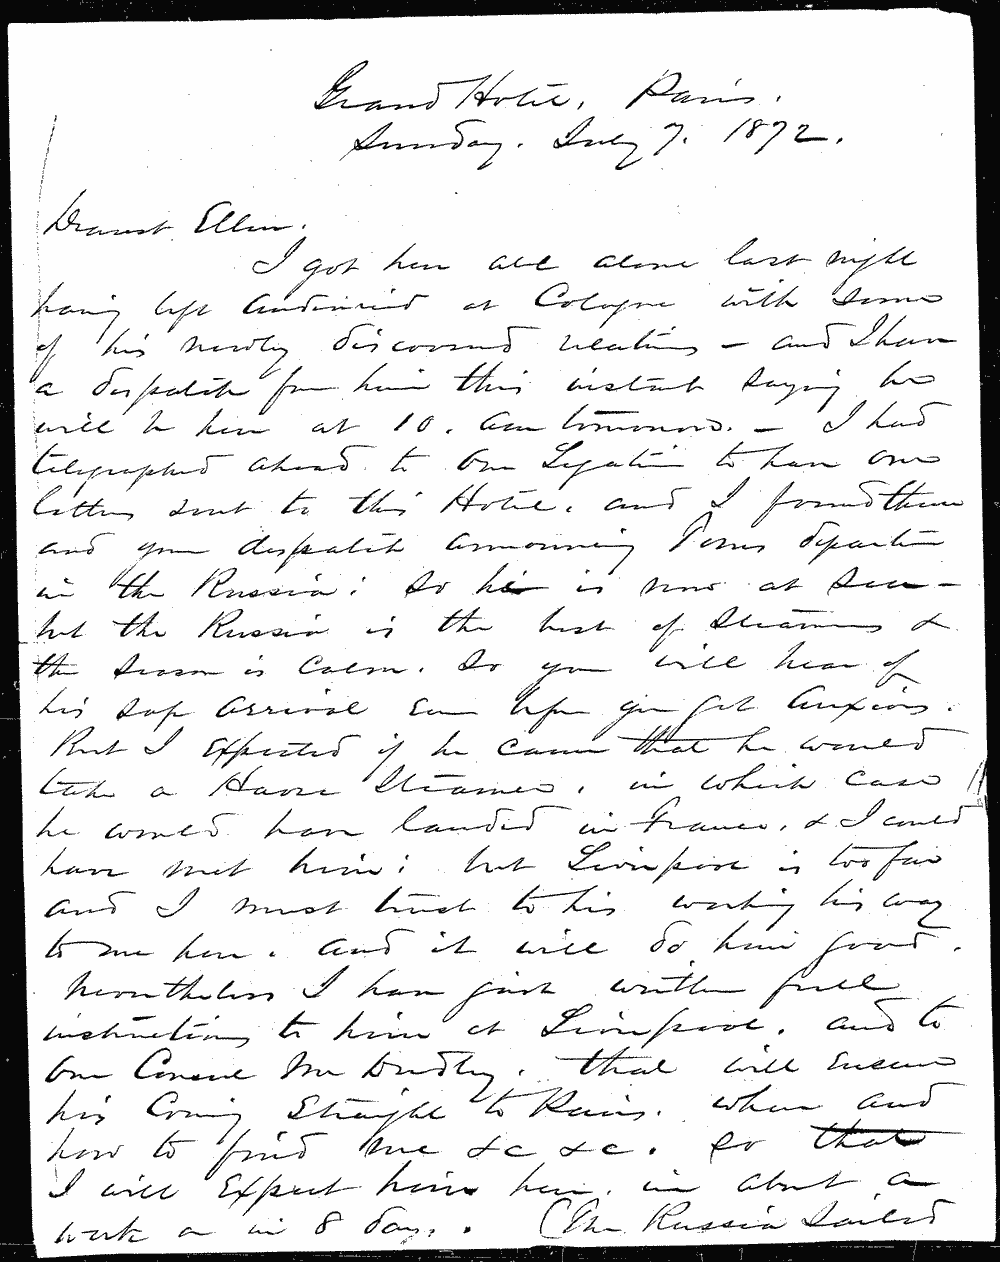 Grand Hotel, Paris.
Sunday. July 7. 1872.
Dearest Ellen.
I got here all alone last night
having left Audenried at Cologne with some
of his newly discovered relations – and I have
a despatch from him this instant saying he
will be here at 10. am tomorrow. – I had
telegraphed ahead to our Legation to have our
letters sent to this Hotel. and I found them
and your despatch announcing Toms departure
in the Russia: So he is now at sea –
but the Russia is the best of Steamers &
the season is calm. So you will hear of
his safe arrival even before you get anxious.
But I expected if he came that he would
take a Havre Steamer, in which case
he would have landed in France, & I could
have met him: but Liverpool is too far
and I must trust to his working his way
to me here. and it will do him good.
Nevertheless I have just written full
instructions to him at Liverpool. and to
our Consul Mr Dudley. that will ensure
his Coming Straight to Paris. when and
how to find me &c &c. so that
I will expect him here, in about a
week or in 8 days. (The Russia Sailed